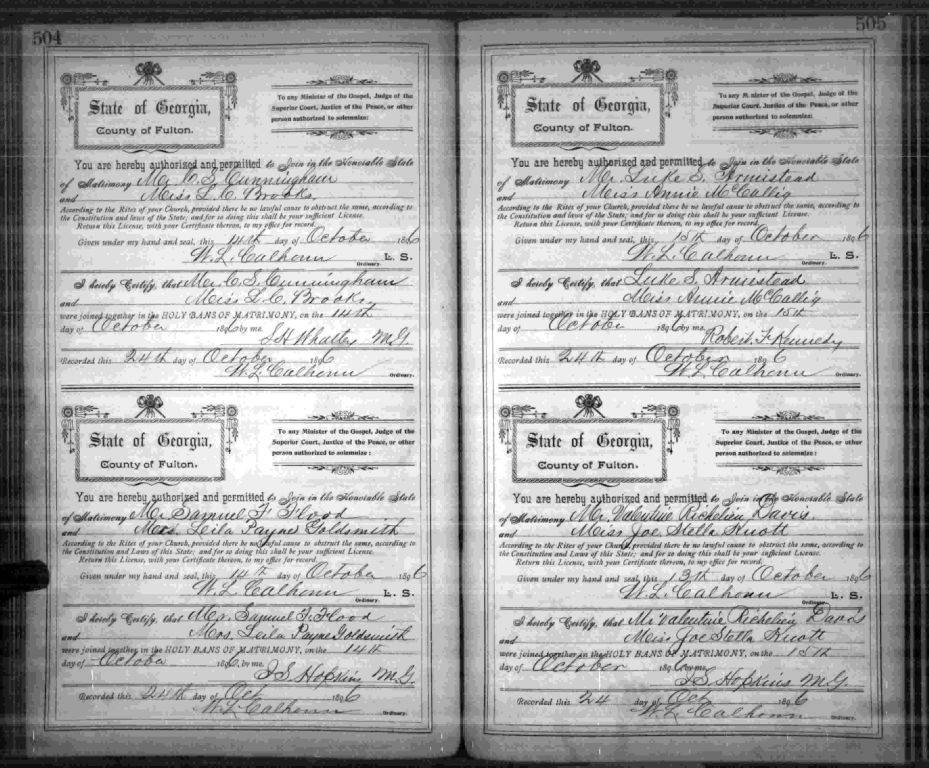 504
State of Georgia,
County of Fulton.
To any Minister of the Gospel, Judge of the
Superior Court, Justice of the Peace, or other
person authorized to solemnize:
You are hereby authorized and permitted to Join in the Honorable State
of Matrimony Mr. C. S. Cunningham
and Miss L. C. Brooks
According to the Rites of your Church, provided there be no lawful cause to obstruct the same, according to
the Constitution and Laws of this State; and for so doing this shall be your sufficient License.
Return this License, with your Certificate thereon, to my office for record.
Given under my hand and seal, this 14th day of October 1896
W. L. Calhoun L. S.
Ordinary.
I hereby Certify, that Mr. C. S. Cunningham
and Miss L. C. Brooks
were joined together in the HOLY BANS OF MATRIMONY, on the 14th
day of October 1896 by me.
M.G.
Recorded this 24th day of October 1896
W. L. Calhoun Ordinary.
State of Georgia,
County of Fulton.
To any Minister of the Gospel, Judge of the
Superior Court, Justice of the Peace, or other
person authorized to solemnize:
You are hereby authorized and permitted to Join in the Honorable State
of Matrimony Mr. Samuel F. Flood
and Mrs. Leila Payne Goldsmith
According to the Rites of your Church, provided there be no lawful cause to obstruct the same, according to
the Constitution and Laws of this State; and for so doing this shall be your sufficient License.
Return this License, with your Certificate thereon, to my office for record.
Given under my hand and seal, this 14th day of October 1896
W. L. Calhoun L. S.
Ordinary.
I hereby Certify, that Mr. Samuel F. Flood
and Mrs. Leila Payne Goldsmith
were joined together in the HOLY BANS OF MATRIMONY, on the 14th
day of October 1896, by me.
I S Hopkins M.G.
Recorded this 24th day of Oct 1896
W L Calhoun Ordinary.
505
State of Georgia,
County of Fulton.
To any Minister of the Gospel, Judge of the
Superior Court, Justice of the Peace, or other
person authorized to solemnize:
You are hereby authorized and permitted to Join in the Honorable State
of Matrimony Mr. Luke S. Armistead
and Miss Annie McCallig
According to the Rites of your Church, provided there be no lawful cause to obstruct the same, according to
the Constitution and laws of the State; and for so doing this shall be your sufficient License.
Return this License, with your Certificate thereon, to my office for record.
Given under my hand and seal, this 15th day of October 1896
W. L. Calhoun L. S.
Ordinary.
I hereby Certify, that Luke S. Armistead
and Miss Annie McCallig
were joined together in the HOLY BANS OF MATRIMONY, on the 15th
day of October 1896 by me.
Robert F. Kennedy
Recorded this 24th day of October 1896
W. L. Calhoun Ordinary.
State of Georgia,
County of Fulton.
To any Minister of the Gospel, Judge of the
Superior Court, Justice of the Peace, or other
person authorized to solemnize:
You are hereby authorized and permitted to Join in the Honorable State
of Matrimony Mr. Valentine Richelieu Davis
and Miss Joe Stella Knott
According to the Rites of your Church, provided there be no lawful cause to obstruct the same, according to
the Constitution and Laws of this State; and for so doing this shall be your sufficient License.
Return this License, with your Certificate thereon, to my office for record.
Given under my hand and seal, this 13th day of October 1896
W. L. Calhoun L. S.
Ordinary.
I hereby Certify, that Mr Valentine Richelieu Davis
and Miss Joe Stella Knott
were joined together in the HOLY BANS OF MATRIMONY, on the 15th
day of October 1896 by me.
I S Hopkins M.G.
Recorded this 24 day of Oct 1896
W. L. Calhoun Ordinary.